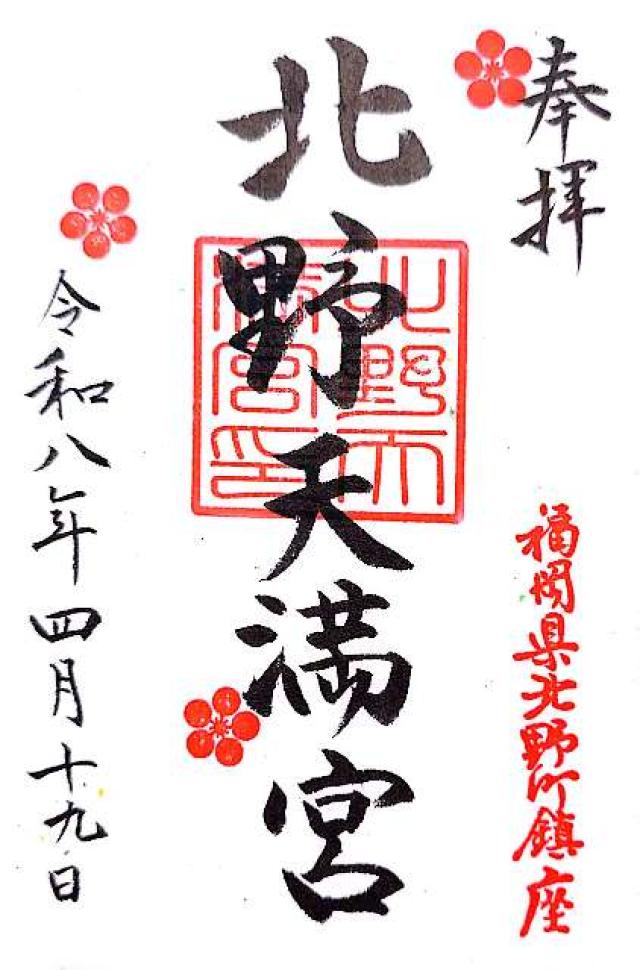 奉拝
福岡県北野町鎮座
北野天満宮
北野天満宮印
令和八年四月十九日